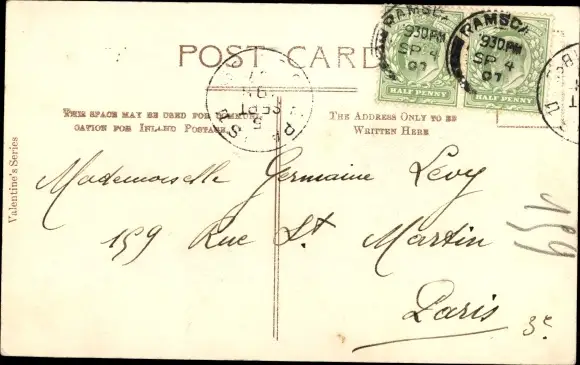 POST CARD
RAMSGA
930PM
SP 4
07
RAMSGA
930PM
SP 4
07
HALF PENNY
HALF PENNY
THIS SPACE MAY BE USED FOR COMMUNI-
CATION FOR INLAND POSTAGE
THE ADDRESS ONLY TO BE
WRITTEN HERE
Valentine's Series
Mademoiselle Germaine Lévy
159 Rue St Martin
Paris
159